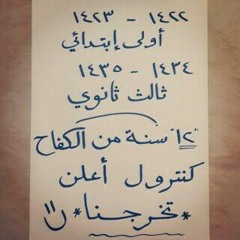 ١٤٢٢ - ١٤٢٣
أولى إبتدائي
١٤٣٤ - ١٤٣٥
ثالث ثانوي
"١٢" سنة من الكفاح
كنترول أعلن
*تخرجنا* ن=